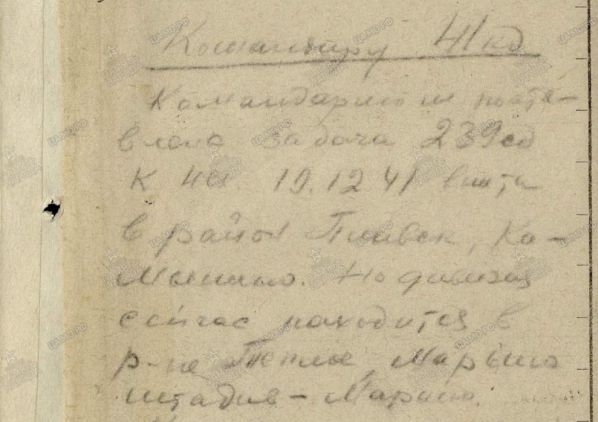 Командиру 41 кд
Командармом поста-
влена задача 239 сд
К 4ч 19.12.41 выйти
в район Пливск, Ка-
мынино. Но дивизия
сейчас находится в
р-не Марьино
штадив – Марьино.